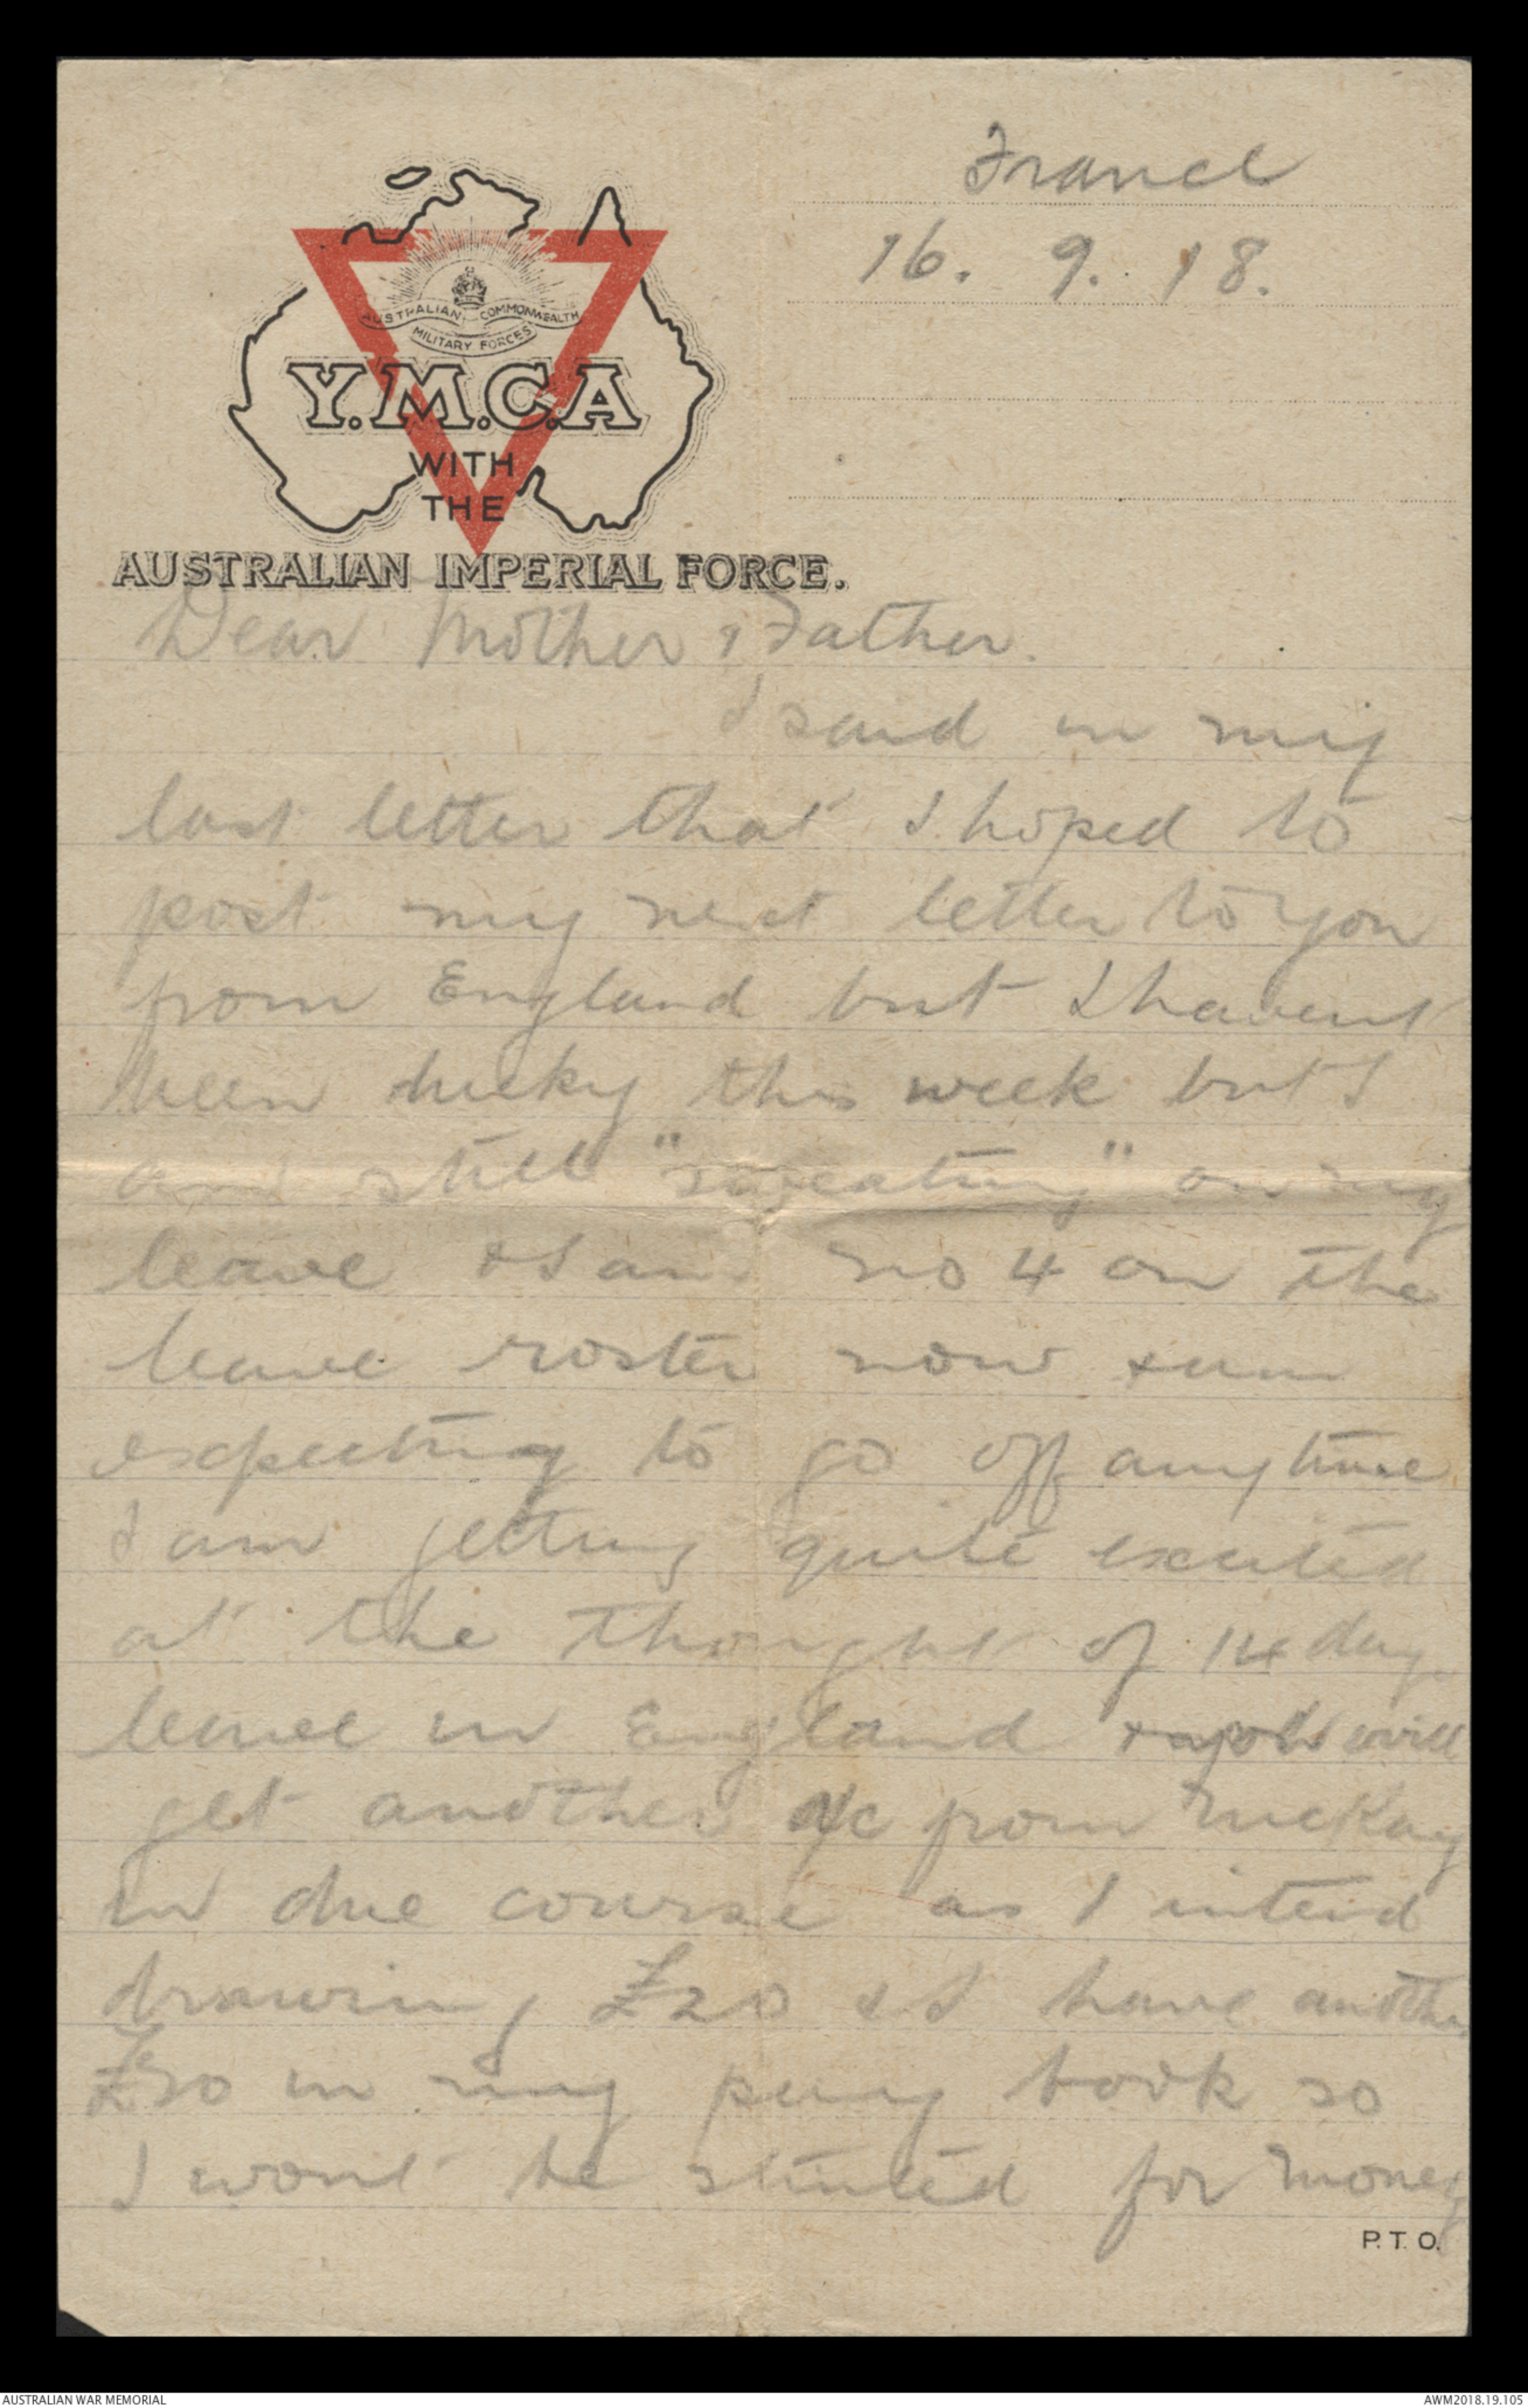 France
16. 9. 18.
AUSTRALIAN COMMONWEALTH
MILITARY FORCES
Y.M.C.A
WITH
THE
AUSTRALIAN IMPERIAL FORCE.
Dear Mother & Father.
I said in my
last letter that I hoped to
post my next letter to you
from England but I havent
been lucky this week but I
am still "sweating" on my
leave & I am no 4 on the
leave roster now & am
expecting to go off anytime
I am getting quite excited
at the thought of 14 days
leave in England & you will
get another a/c from McKay
in due course as I intend
drawing £20 & I have another
£20 in my pay book so
I wont be stinted for money
P.T.O.
AUSTRALIAN WAR MEMORIAL
AWM2018.19.105